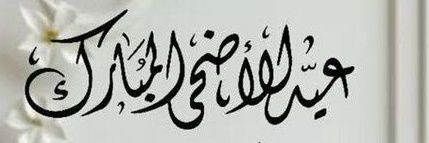 عيد الأضحى المبارك